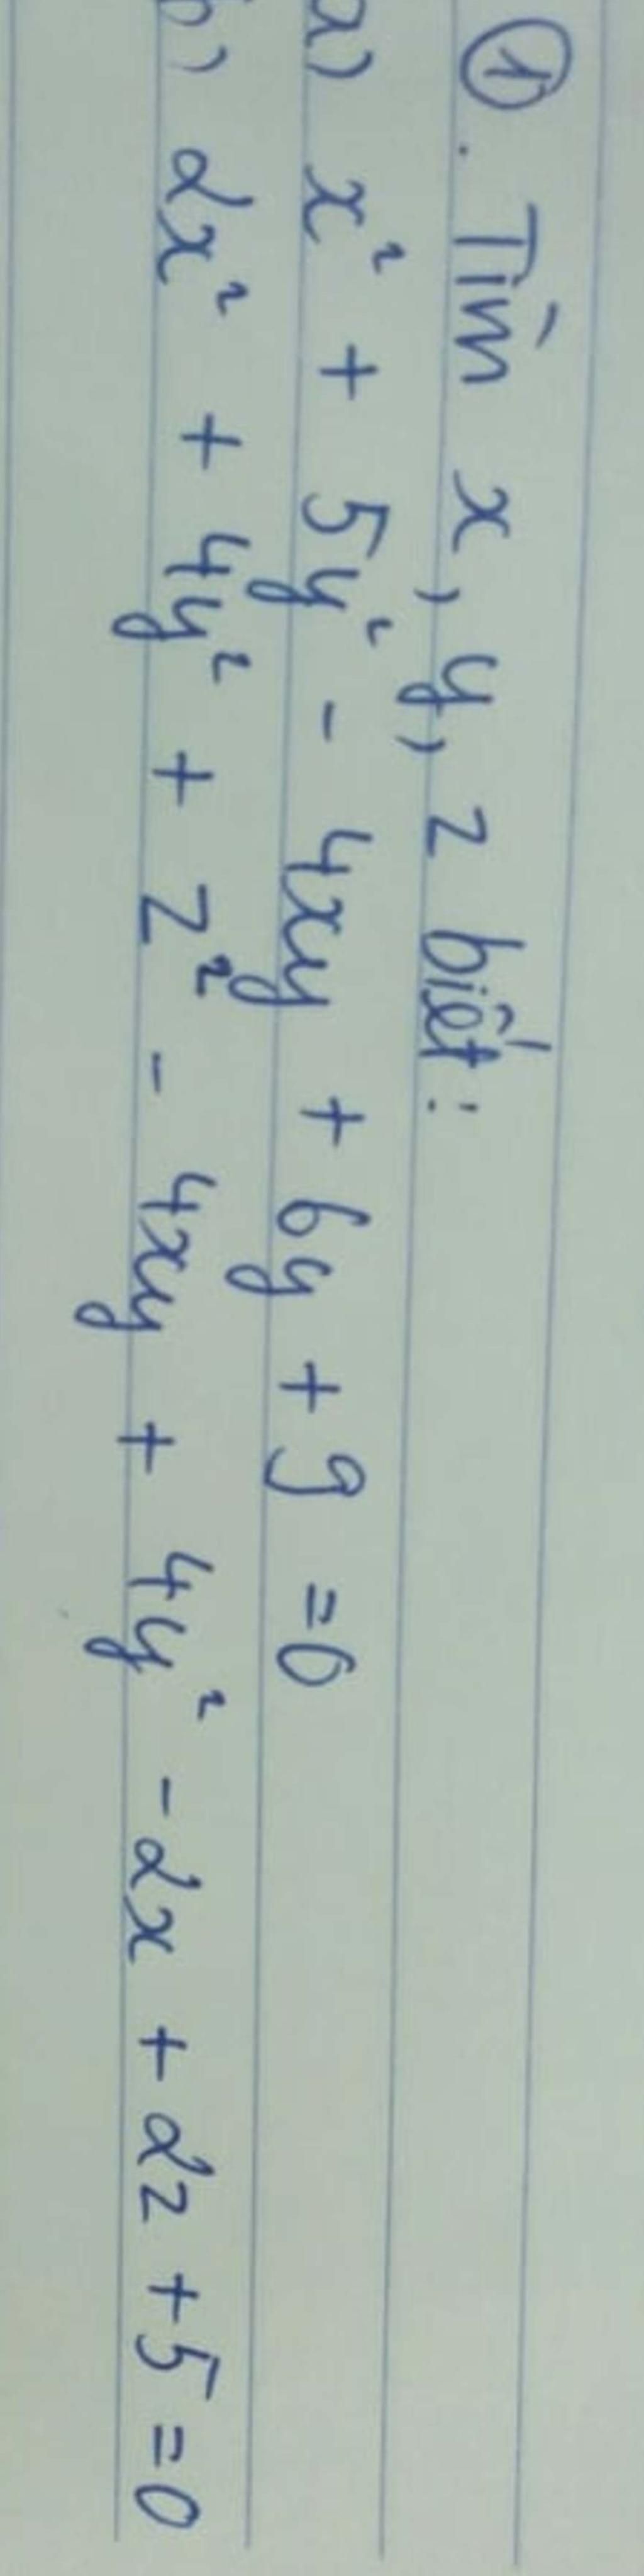 ①. Tìm x, y, z biết:
a) x² + 5y² - 4xy + 6y + 9 = 0
b) 2x² + 4y² + z² - 4xy + 4y² - 2x + 2z + 5 = 0